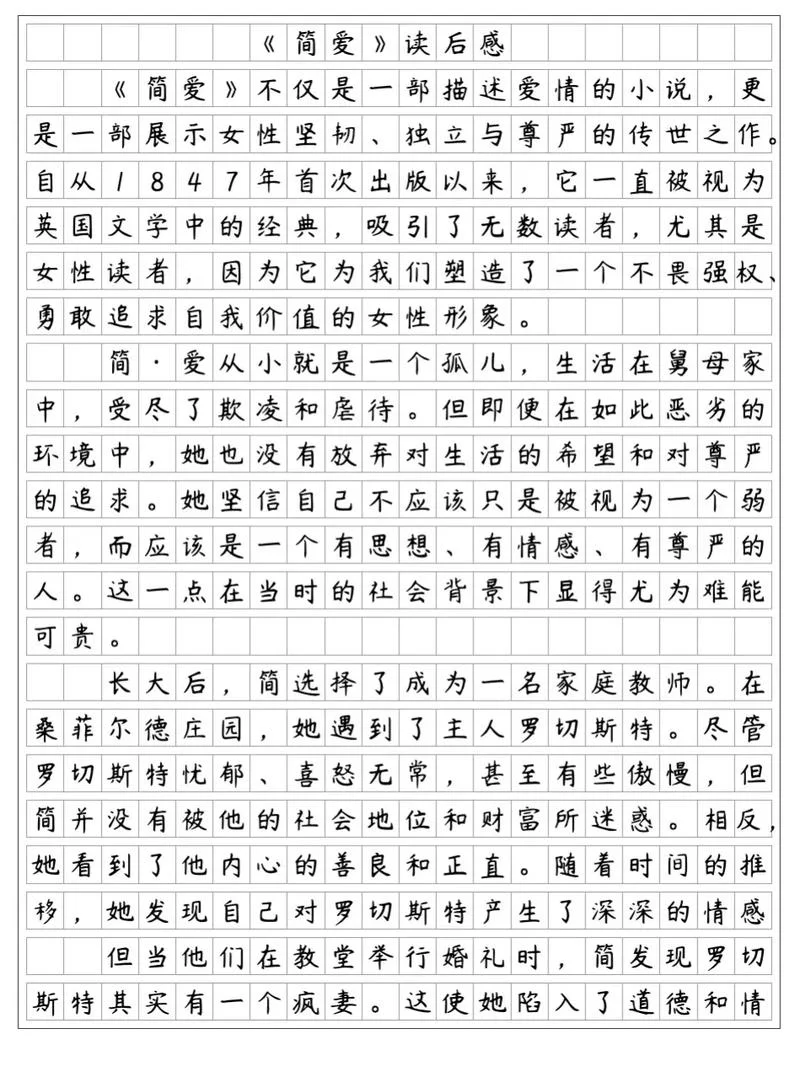 《简爱》读后感
《简爱》不仅是一部描述爱情的小说，更
是一部展示女性坚韧、独立与尊严的传世之作。
自从1847年首次出版以来，它一直被视为
英国文学中的经典，吸引了无数读者，尤其是
女性读者，因为它为我们塑造了一个不畏强权、
勇敢追求自我价值的女性形象。
简·爱从小就是一个孤儿，生活在舅母家
中，受尽了欺凌和虐待。但即便在如此恶劣的
环境中，她也没有放弃对生活的希望和对尊严
的追求。她坚信自己不应该只是被视为一个弱
者，而应该是一个有思想、有情感、有尊严的
人。这一点在当时的社会背景下显得尤为难能
可贵。
长大后，简选择了成为一名家庭教师。在
桑菲尔德庄园，她遇到了主人罗切斯特。尽管
罗切斯特忧郁、喜怒无常，甚至有些傲慢，但
简并没有被他的社会地位和财富所迷惑。相反，
她看到了他内心的善良和正直。随着时间的推
移，她发现自己对罗切斯特产生了深深的情感
但当他们在教堂举行婚礼时，简发现罗切
斯特其实有一个疯妻。这使她陷入了道德和情